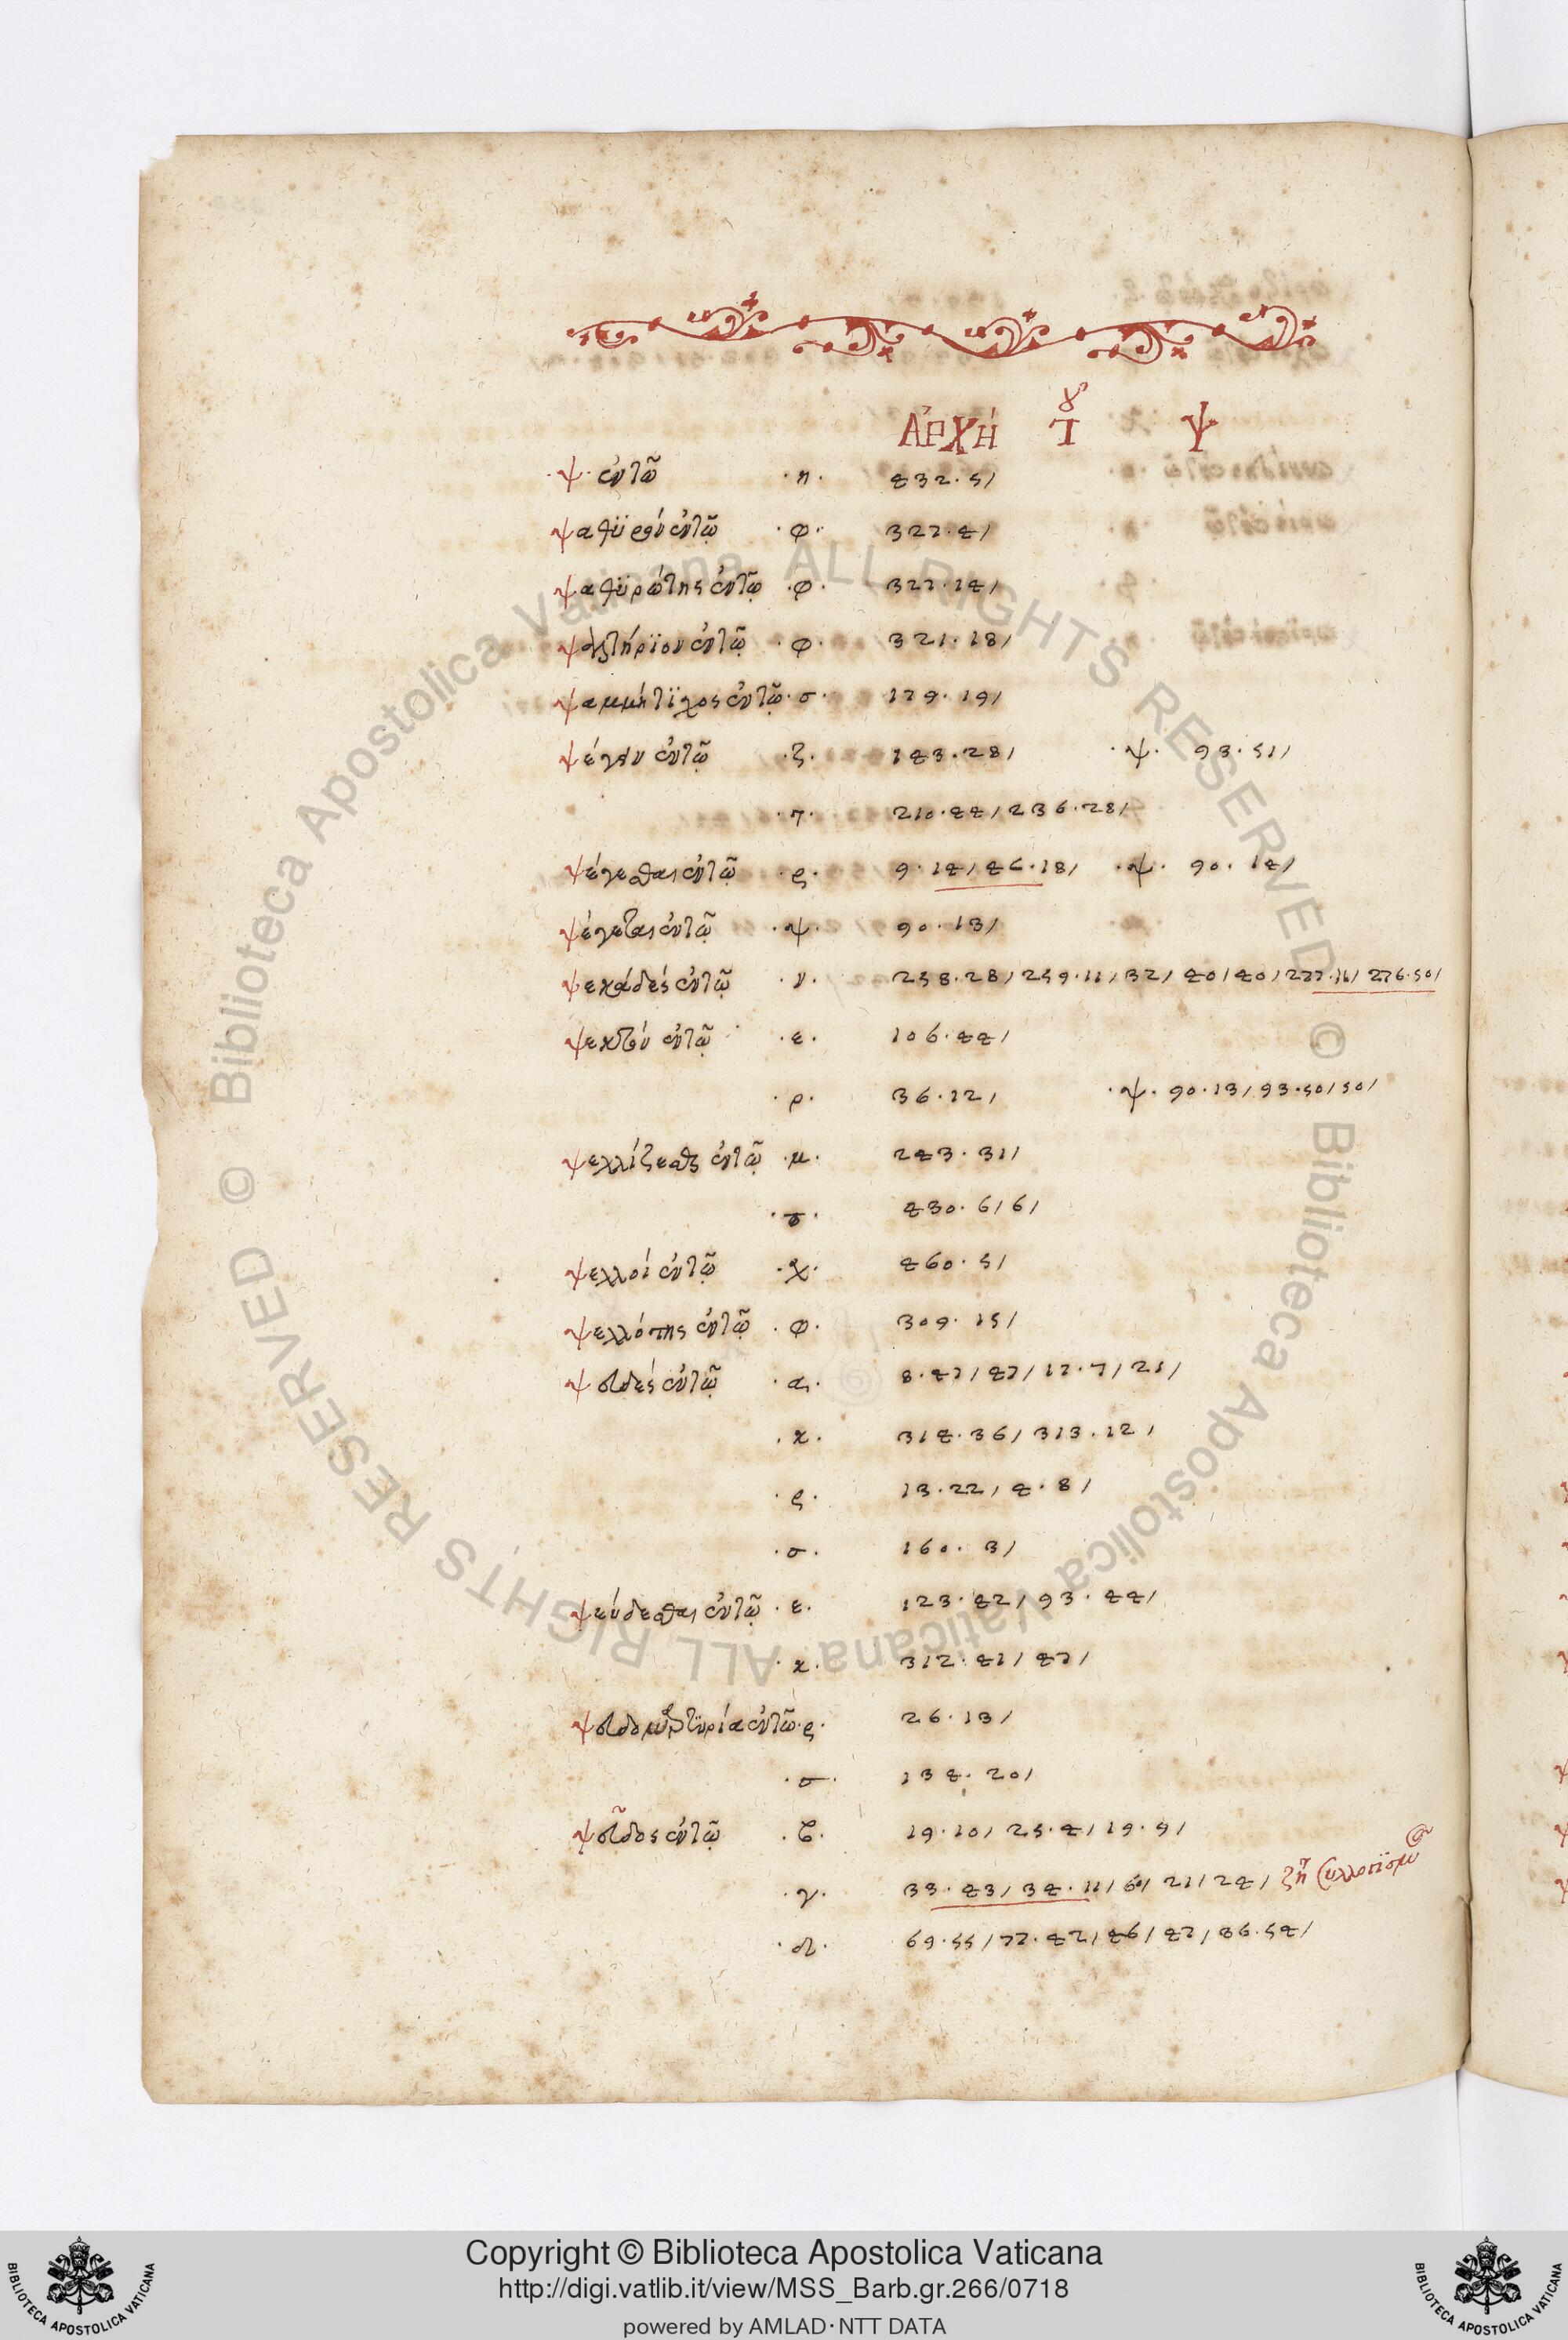 ἈΡΧΉ τοῦ Ψ
·ψ· ἐντῶ ·η· 432·5/
ψαθϋρόν ἐντῶ ·φ· 327·4/
ψαθϋρότης ἐντῶ ·φ· 327·14/
ψαλτήρϊον ἐντῶ ·φ· 321·18/
ψαμμήτϊχος ἐντῶ ·σ· 179·19/
ψέγειν ἐντῶ ·ζ· 143·28/ ·ψ· 93·51/
·τ· 210·44/236·28/
ψέγεσθαι ἐντῶ ·ε· 9·14/46·18/ ·ψ· 90·14/
ψέγεται ἐντῶ ·ψ· 90·13/
ψεκάδες ἐντῶ ·ν· 258·28/259·11/32/40/40/277·16/276·50/
ψεκτόν ἐντῶ ·ε· 106·44/
·ρ· 36·12/ ·ψ· 90·13/93·50/50/
ψελλίζεσθαι ἐντῶ ·μ· 243·31/
430·6/6/
ψελλοί ἐντῶ ·χ· 460·5/
ψελλότης ἐντῶ ·φ· 309·15/
ψευδές ἐντῶ ·α· 8·47/47/17·7/21/
·κ· 314·36/313·12/
·ε· 13·22/4·8/
·σ· 160·3/
ψεύδεσθαι ἐντῶ ·ε· 123·42/93·44/
·κ· 312·41/47/
ψευδομαρτϋρία ἐντῶ ·ε· 26·13/
·σ· 134·20/
ψεῦδος ἐντῶ ·β· 19·10/25·4/19·5/
·γ· 33·43/34·11/6/21/24/ ζήτει
·δ· 69·55/72·42/46/47/36·54/
Copyright © Biblioteca Apostolica Vaticana
http://digi.vatlib.it/view/MSS_Barb.gr.266/0718
powered by AMLAD·NTT DATA
© Biblioteca Apostolica Vaticana ALL RIGHTS RESERVED © Biblioteca Apostolica Vaticana ALL RIGHTS RESERVED
BIBLIOTECA APOSTOLICA VATICANA
BIBLIOTECA APOSTOLICA VATICANA